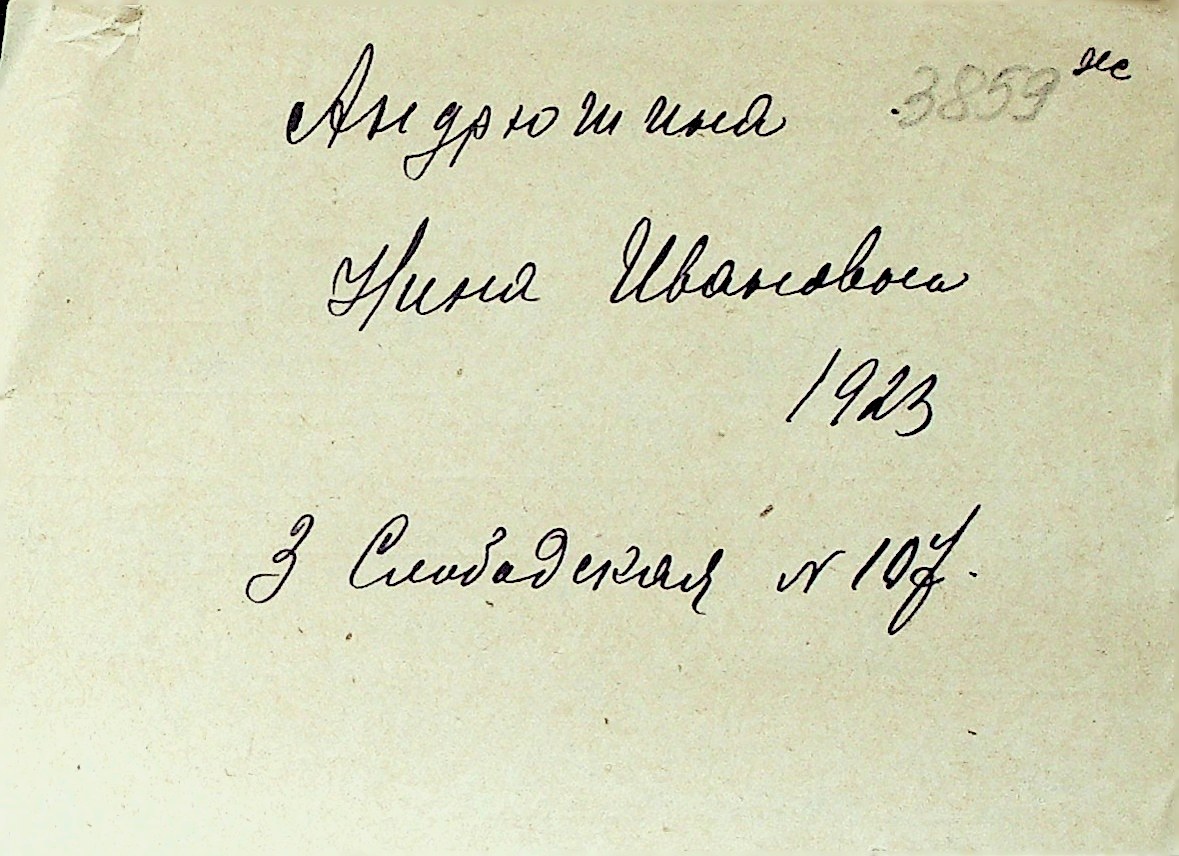 Андрюшина 3859 нс
Нина Ивановна
1923
3 Слободская N 107.